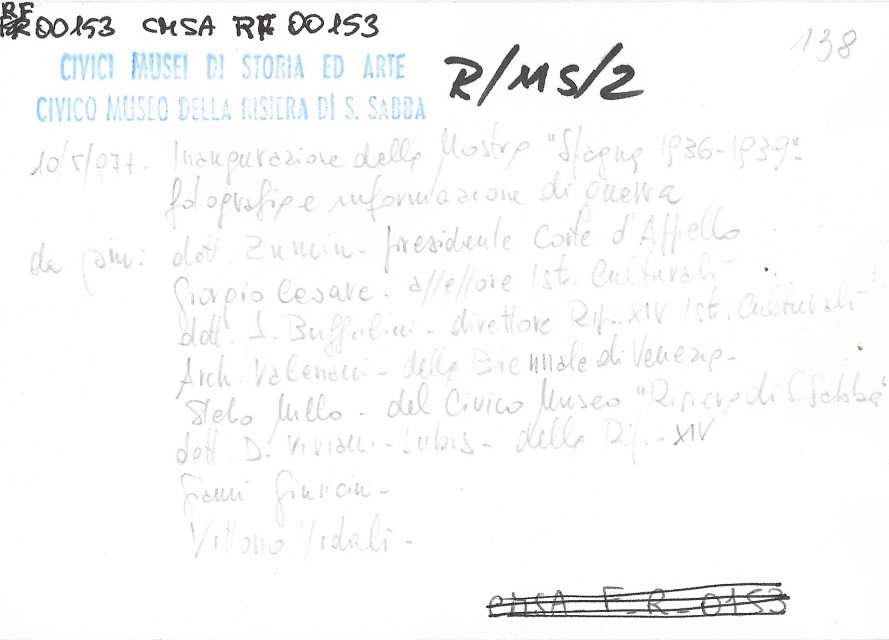 RF 00153 CMSA RF 00153
138
CIVICI MUSEI DI STORIA ED ARTE
CIVICO MUSEO DELLA RISIERA DI S. SABBA
R/MS/2
10/5/977. Inaugurazione della Mostra "Spagna 1936-1939"-
fotografia e informazione di guerra
da sin: dott. Zumin - presidente Corte d'Appello
Giorgio Cesare. assessore Ist. Culturali
dott. S. - direttore Rip. XIV Ist. Culturali
Arch. - della Biennale di Venezia-
- del Civico Museo "Risiera di S. Sabba"
dott. D. - - della Rip. - XIV
Gianni Giuricin -
Vittorio Vidali -
CMSA F-R-0153